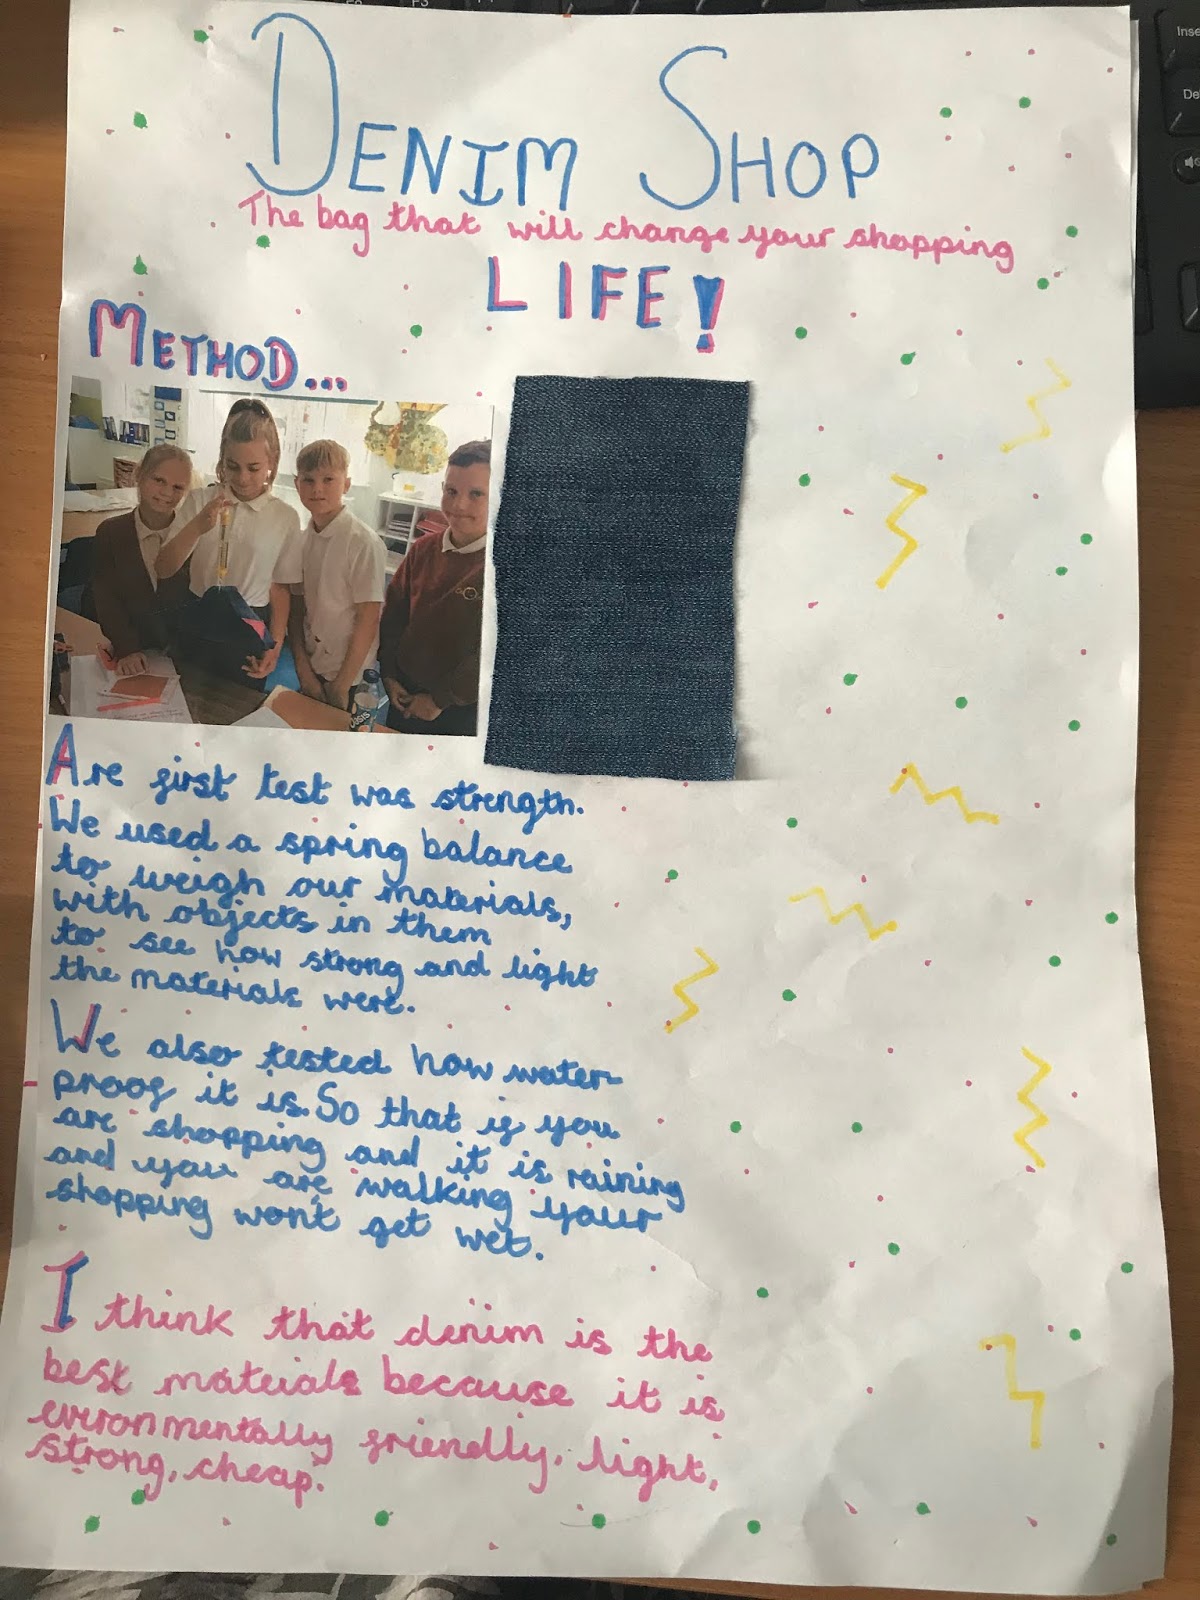 DENIM SHOP
The bag that will change your shopping
LIFE!
METHOD...
Are first test was strength.
We used a spring balance
to weigh our materials,
with objects in them
to see how strong and light
the materials were.
We also tested how water
proof it is. So that if you
are shopping and it is raining
and you are walking your
shopping won't get wet.
I think that denim is the
best mateials because it is
evironmentally friendly, light,
strong, cheap.
Inse
De
Oasis